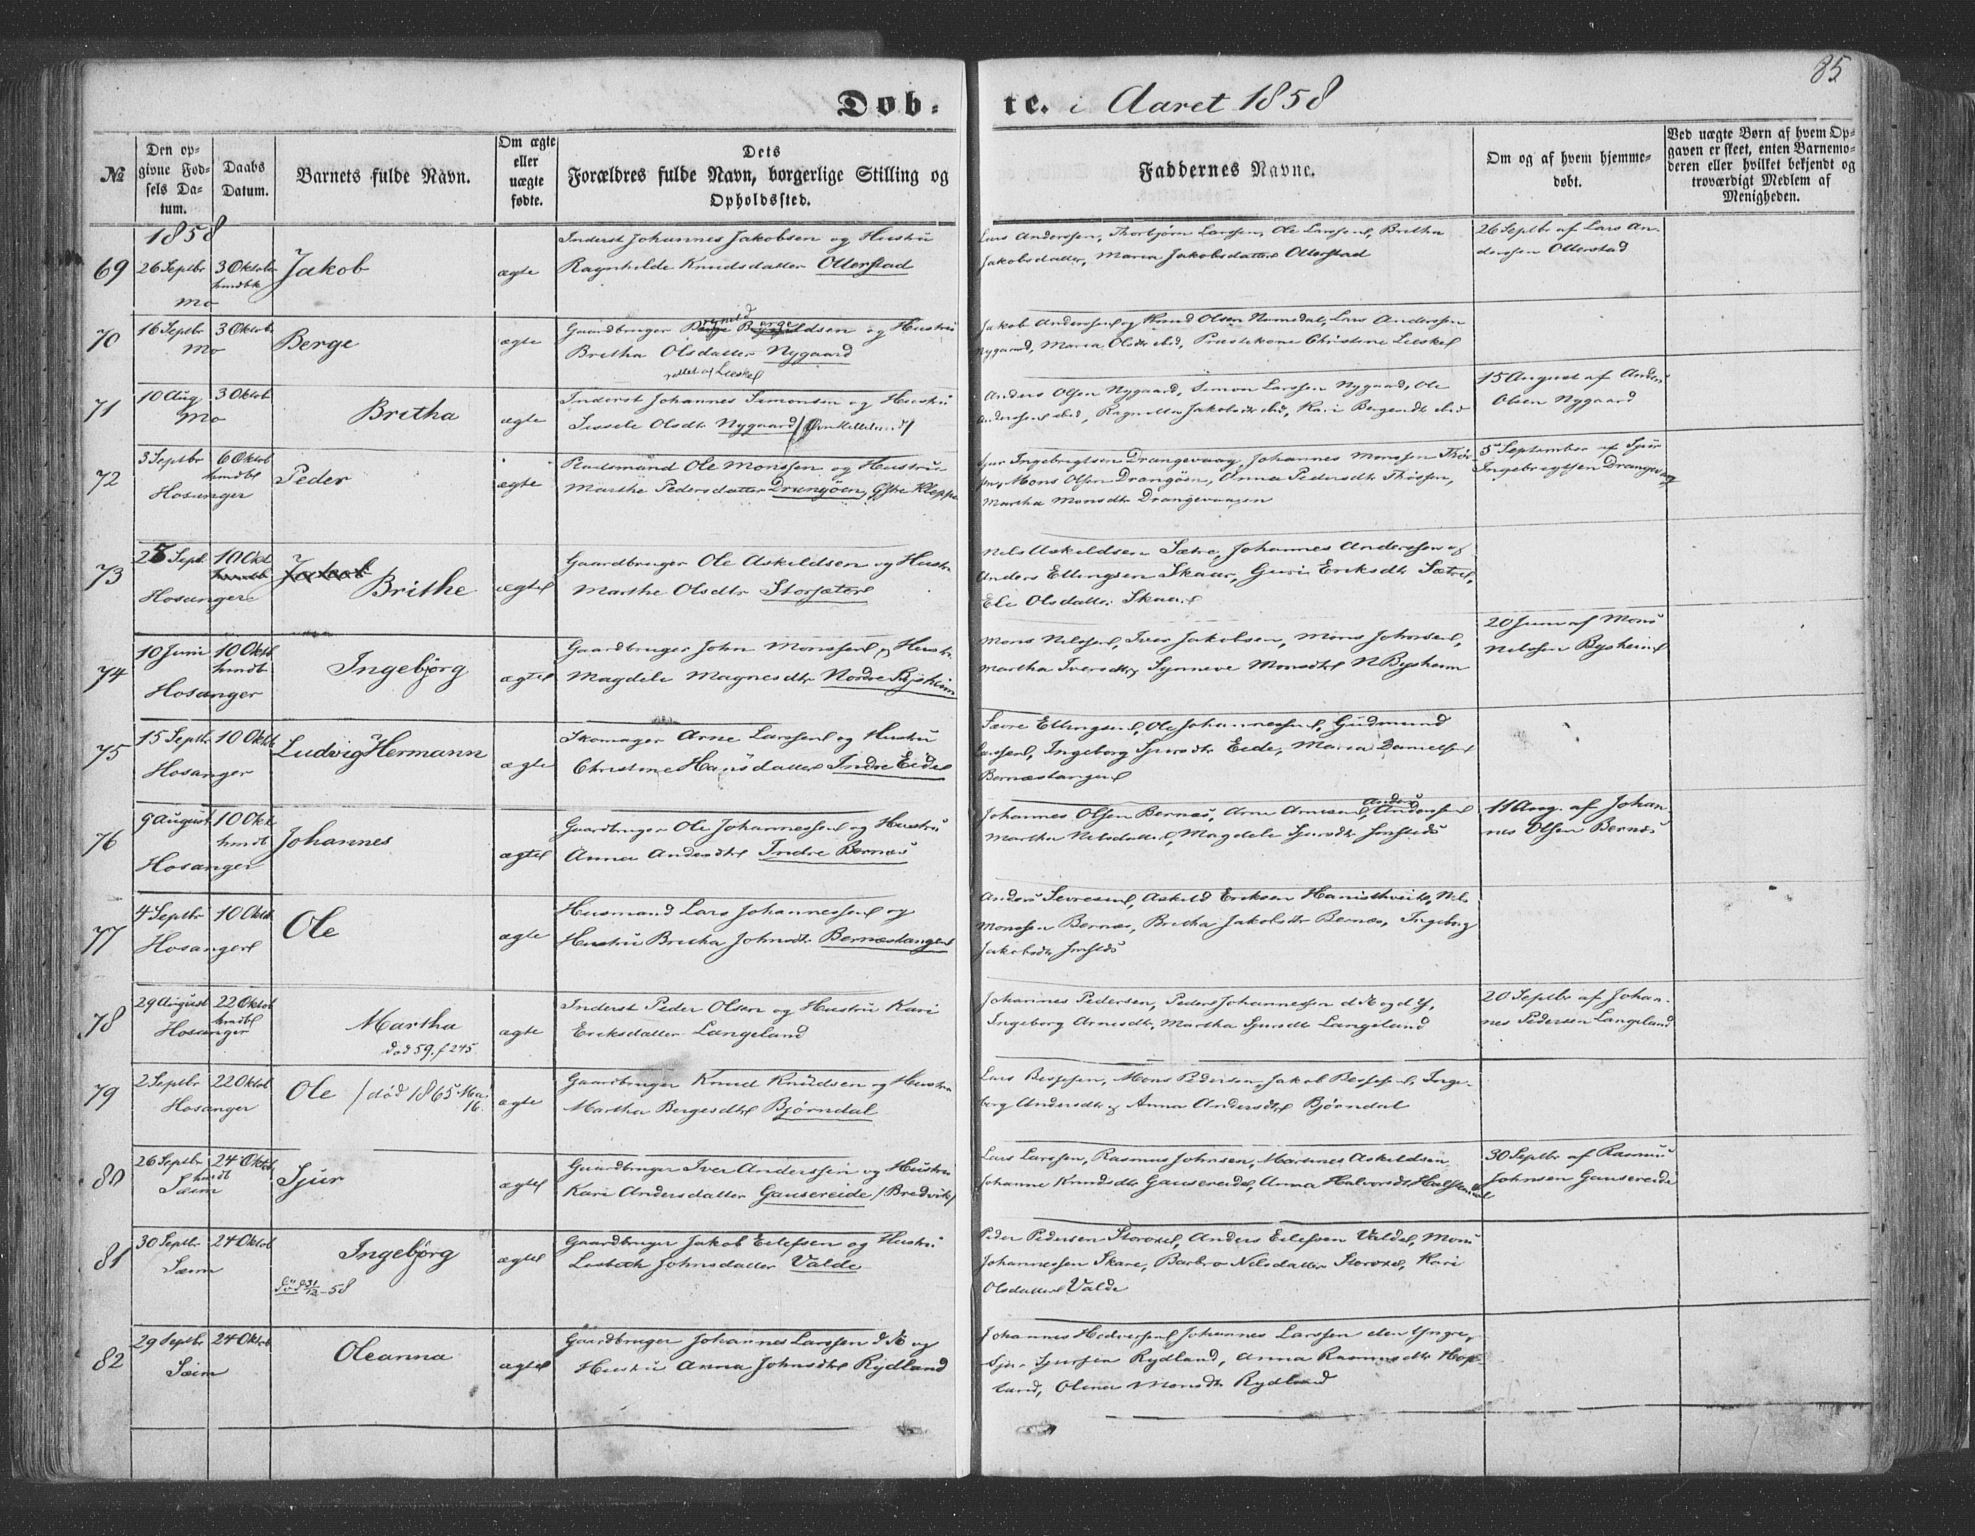 85
Døb- te. i Aaret 1858
№
Den op-
givne Fød-
sels Da-
tum.
Daabs
Datum.
Barnets fulde Navn.
Om ægte
eller
uægte
fødte.
Dets
Forældres fulde Navn, borgerlige Stilling og
Opholdssted.
Faddernes Navne.
Om og af hvem hjemme-
døbt.
Ved uægte Børn af hvem Op-
gaven er skeet, enten Barnemo-
deren eller hvilket bekjendt og
troværdigt Medlem af
Menigheden.
1858
69 26 Septbr 3 Oktober
hmdbt
Mo
Jakob
ægte
Inderst Johannes Jakobsen og Hustru
Ragnhilde Knudsdatter Otterstad
Lars Anderssen, Thorbjørn Larssen, Ole Larssen, Britha
Jakobsdatter, Maria Jakobsdatter Otterstad
26 Septbr af Lars An-
derssen Otterstad
70 16 Septbr 3 Oktob.
Mo
Berge
ægte
Gaardbruger og Hustru
Bretha Olsdatter Nygaard
Jakob Anderssen og Knud Olsen Romsdal, Lars Anderssen
Nygaard, Maria Olsdtr ibid, Præstekone Christine Leeskel
71 10 Aug 3 Oktob.
Mo
Britha
ægte
Inderst Johannes Simonsen og Hustru
Sissele Olsdtr Nygaard
Anders Olsen Nygaard, Simon Larssen Nygaard, Ole
Anderssen ibid, Ragnilda Jakobsdtr ibid, Kari Bergesdtr ibid
15 August af Anders
Olsen Nygaard
72 3 Septbr 6 Oktob
hmdbt
Hosanger
Peder
ægte
Ole Monssen og Hustru
Marthe Pedersdatter Drangøen,
Sjur Ingebrigtsen Drangevaag, Johannes Monssen
Mons Olsen Drangøen, Anna Pedersdtr
Martha Monsdtr Drangevaagen
5 September af Sjur
Ingebrigtsen Drangevaag
73 25 Septb. 10 Okt
Hosanger
Brithe
ægte
Gaardbruger Ole Askildsen og Hustr.
Marthe Olsdtr Storsæter
Nils Askildsen Sætre, Johannes Anderssen og
Anders Ellingsen Skaar, Guri Eriksdtr Sætre,
Eli Olsdatter Skaar
74 10 Juni 10 Oktb
hmdbt
Hosanger
Ingebjørg
ægte
Gaardbruger John Monssen og Hustr.
Magdele Magnesdtr Nordre Bysheim
Mons Nilssen, Iver Jakobsen, Mons Johnsen,
Martha Iversdtr, Synneve Monsdtr N Bysheim
20 Juni af Mons
Nilssen Bysheim
75 15 Septbr 10 Oktb
Hosanger
Ludvig Hermann
ægte
Skomager Arne Larssen og Hustru
Christine Hansdatter Indre Eide
Sævre Ellingsen, Ole Johannessen, Gudmund
Larssen, Ingeborg Sjursdtr Eide, Maria Danielsen
Bernæstangen
76 9 August 10 Okt.
hmdt
Hosanger
Johannes
ægte
Gaardbruger Ole Johannessen og Hustru
Anna Andersdtr Indre Bernæs
Johannes Olsen Bernæs, Arne Arnesen, Anders Anderssen
Martha Nilsdatter, Magdele Sjursdtr
11 Aug. af Johan-
nes Olsen Bernæs
77 4 Septbr 10 Oktb.
Hosanger
Ole
ægte
Husmand Lars Johannessen og
Hustru Britha Johnsdtr Bernæstangen
Anders Sevresen, Askild Eriksen Hanisthveite, Nils
Monssen Bernæs, Britha Jakobsdtr Bernæs, Ingeborg
Jakobsdtr
78 29 August 22 Oktob
hmdbt
Hosanger
Martha
død 59. f 245
ægte
Inderst Peder Olsen og Hustru Kari
Eriksdatter Langeland
Johannes Pedersen, Peder Johannessen d Æ og d Y,
Ingeborg Arnesdtr, Martha Sjursdtr Langeland
20 Septbr af Johan-
nes Pedersen Langeland
79 2 Septbr 22 Oktob
Hosanger
Ole / død 1865 Mai
16.
ægte
Gaardbruger Knud Knudsen og Hustru
Martha Bergesdtr Bjørndal
Lars Bessesen, Mons Pedersen, Jakob Bessesen, Inge-
borg Andersdtr og Anna Andersdtr Bjørndal
80 26 Septbr 24 Oktob.
hmdt
Sæim
Sjur
ægte
Gaardbruger Iver Anderssen og Hustru
Kari Andersdatter Gausereide / Bredvik /
Lars Larssen, Rasmus Johnsen, Martines Askildsen
Johanne Knudsdtr Gausereide, Anna Halvorsdtr
30 Septbr af Rasmus
Johnsen Gausereide
81 30 Septbr 24 Oktob
Sæim
Ingebjørg
død 31/12-58
ægte
Gaardbruger Jakob Eilefsen og Hustru
Lisbeth Johnsdatter Valde
Peder Pedersen Storoxel, Anders Eilefsen Valde, Mons
Johannessen Skare, Barbro Nilsdatter Storoxel, Kari
Olsdatter Valde
82 29 Septbr 24 Oktob
Sæim
Oleanna
ægte
Gaardbruger Johannes Larssen d Æ og
Hustru Anna Johnsdtr Rydland
Johannes Larssen den Yngre,
Sjur Sjursen Rydland, Anna Rasmusdtr Hop-
land, Olina Monsdtr Rydland